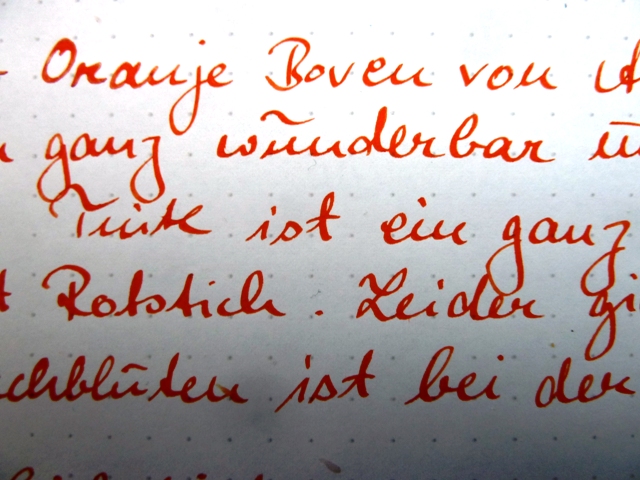 Oranje Boven von
ganz wunderbar
Tinte ist ein ganz
Rotstich. Leider
chblüten ist bei der